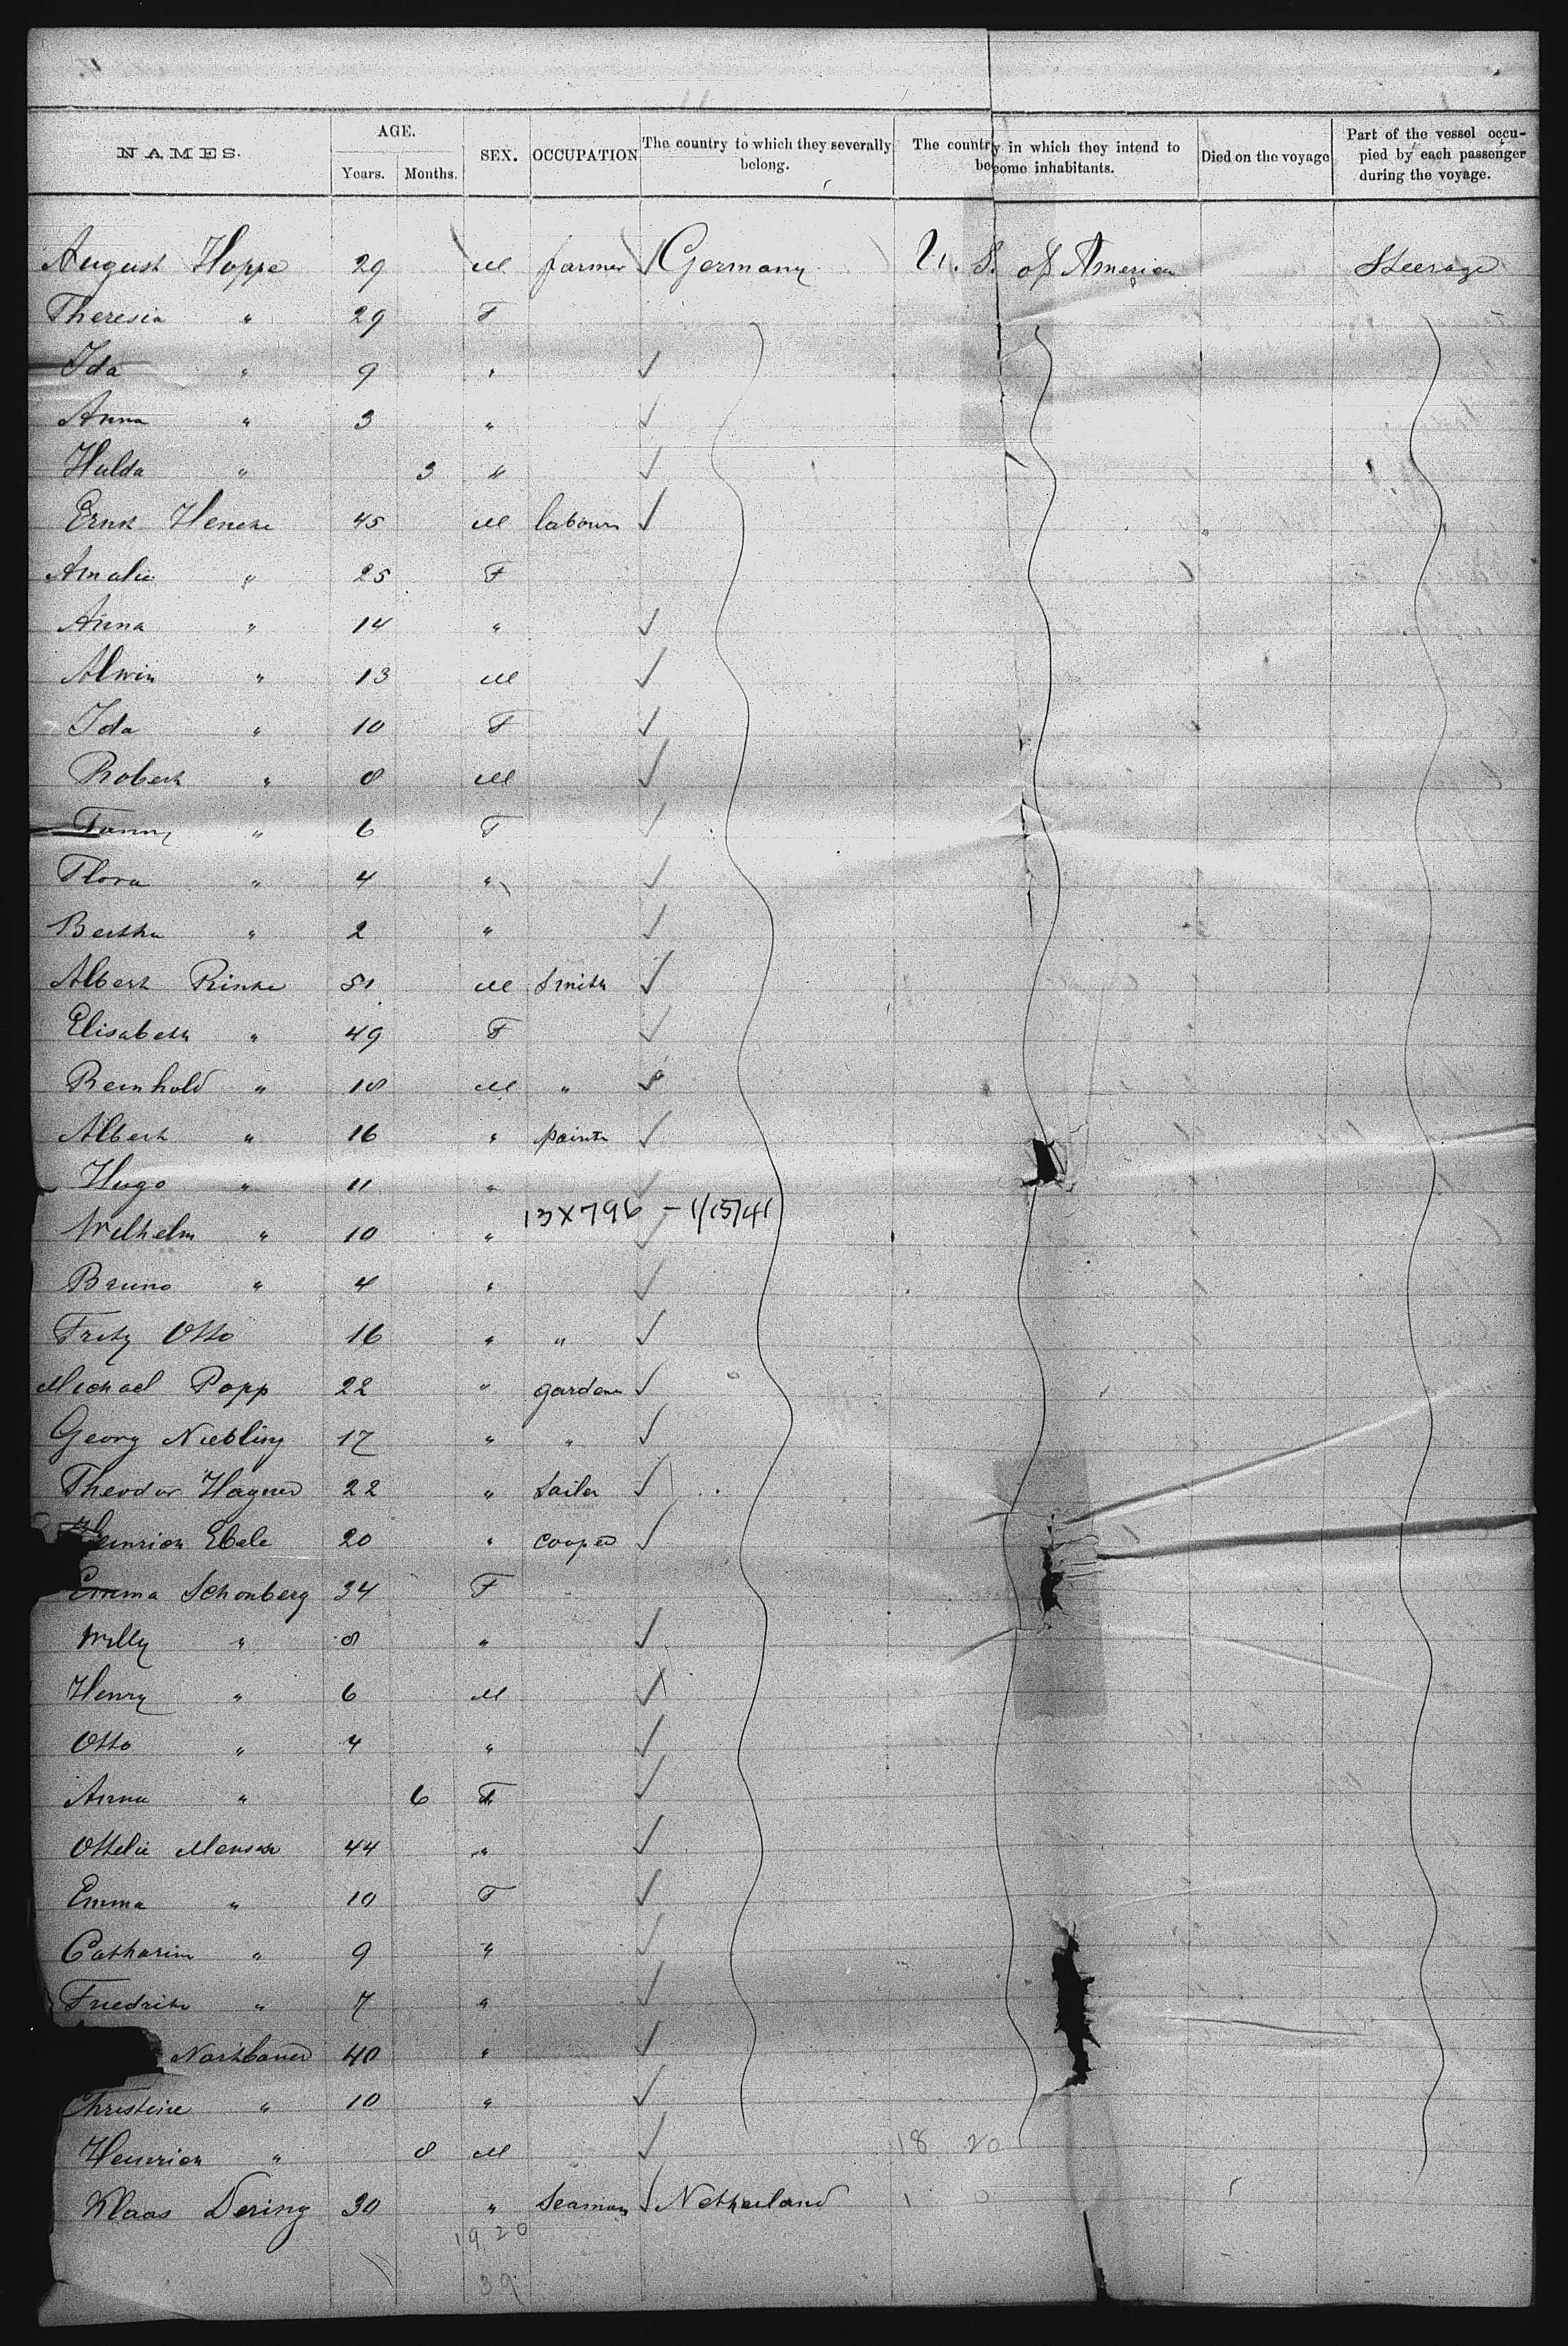 NAMES. AGE. Years. Months. SEX. OCCUPATION The country to which they severally belong. The country in which they intend to become inhabitants. Died on the voyage Part of the vessel occupied by each passenger during the voyage.
August Hoppe 29 M farmer ✓ Germany U. S. of America Steerage
Theresia " 29 F
Ida " 9 " ✓
Anna " 3 " ✓
Hulda " 3 " ✓
Ernst Heneke 45 M labourer ✓
Amalie " 25 F
Anna " 14 " ✓
Alwin " 13 M ✓
Ida " 10 F ✓
Robert " 8 M ✓
Fanny " 6 F ✓
Flora " 4 " ✓
Bertha " 2 " ✓
Albert Rinke 51 M Smith ✓
Elisabeth " 49 F ✓
Reinhold " 18 M " ✓
Albert " 16 " painter ✓
Hugo " 11 " ✓
13X796 – 1/15/41
Wilhelm " 10 " ✓
Bruno " 4 " ✓
Fritz Otto 16 " " ✓
Michael Popp 22 " gardener ✓
Georg Niebling 17 " " ✓
Theodor Hagner 22 " ✓
Heinrich Ebele 20 " cooper ✓
Emma Schonberg 34 F
Willy " 8 " ✓
Henry " 6 M ✓
Otto " 4 " ✓
Anna " 6 F ✓
Ottilie 44 " ✓
Emma " 10 F ✓
Catharine " 9 " ✓
Friedrike " 7 " ✓
40 " ✓
Christine " 10 " ✓
Heinrich " 8 M ✓ 18 20
Klaas Dering 30 " Seaman ✓ Netherland 1 0
19 20
39